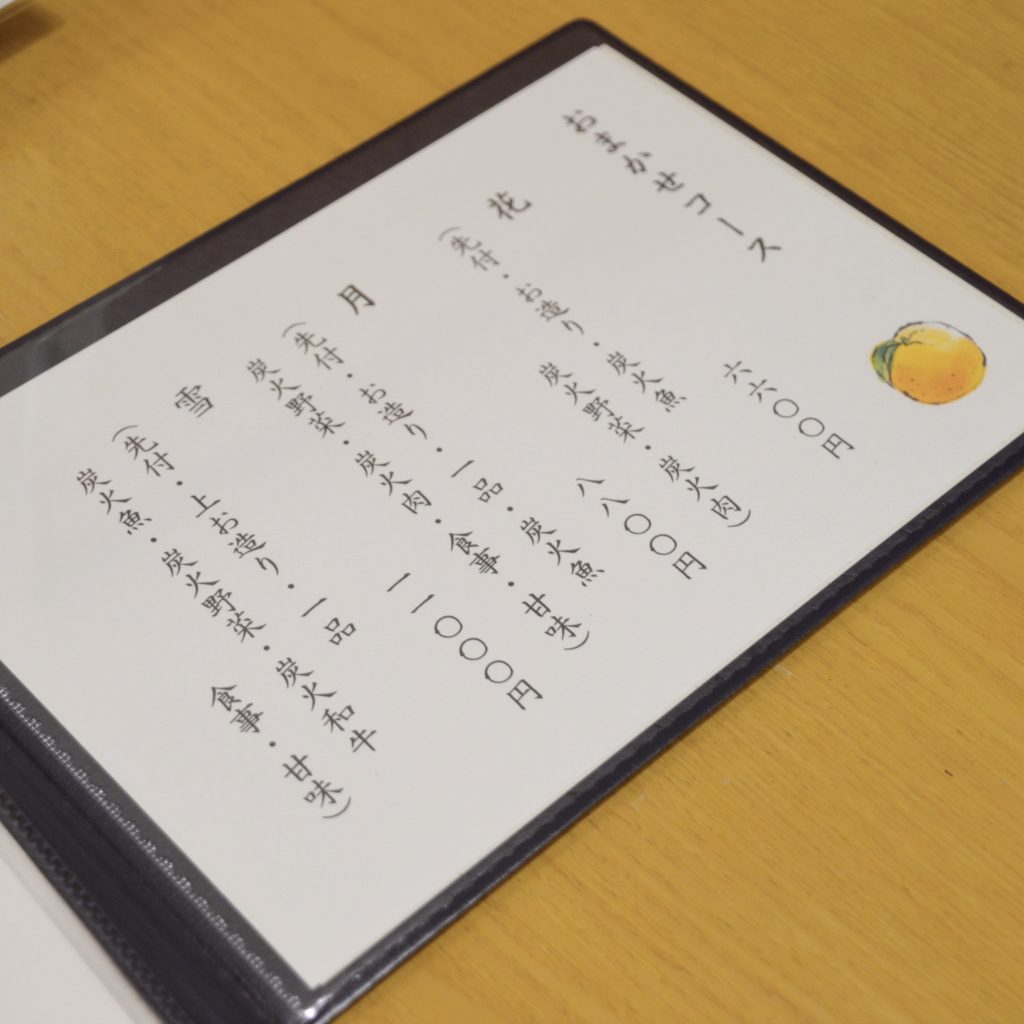 おまかせコース
花 六六〇〇円
(先付・お造り・炭火魚
炭火野菜・炭火肉)
月 八八〇〇円
(先付・お造り・一品・炭火魚
炭火野菜・炭火肉・食事・甘味)
雪 一一〇〇〇円
(先付・上お造り・一品
炭火魚・炭火野菜・炭火和牛
食事・甘味)